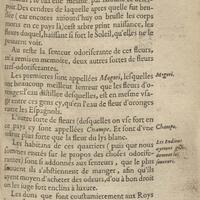 Des cendres de laquelle apres quelle fut brus-
lée (car encores aujourd'huy on brusle les corps
en ce pays là) cest arbre print naissance, les
fleurs duquel, haissant si fort le Soleil, qu'elles ne le
peuuent voir.
Au reste la senteur odoriferante de ces fleurs,
m'a remis en memoire, deux autres sortes de fleurs
tres-odoriferantes.
Les premieres sont appellées Mogori, lesquelles
ont beaucoup meilleur senteur que les fleurs d'o-
ranges: l'eau distilée desquelles, est en mesme vsa-
ge entre ces gens cy, qu'en l'eau de fleur d'oronges
entre les Espagnols.
L'autre sorte de fleurs (desquelles on vse fort en
en pays cy) sont appellées Champe. Et sont d'vne
odeur plus forte que la fleur du lys blanc.
Les habitans de ces quartiers (puis que nous
sommes entrés sur le propos des choses odorife-
rantes) sont si addonnés aux senteurs, que le plus
souuent ils s'abstiennent de manger, afin qu'ils
ayent moyen d'achetter des odeurs, d'ou à bon droit
on les juge fort enclins à luxure.
Les dons que font coustumierement aux Roys
Mogori.
Champe.
Les Indiens